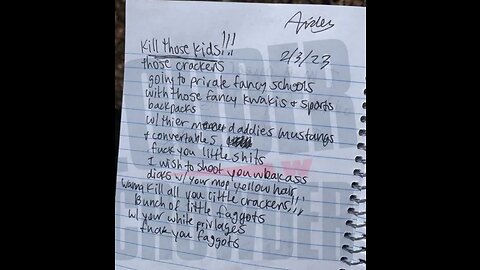 Aiden
Kill those kids!!!
2/3/23
those crackers
going to private fancy schools
with those fancy kwakis + sports
backpacks
w/ thier daddies mustangs
+ convertables
fuck you little shits
I wish to shoot you weakass
dicks w/ your mop yellow hair
wanna kill all you little crackers!!!
Bunch of little faggots
w/ your white privlages
fuck you faggots